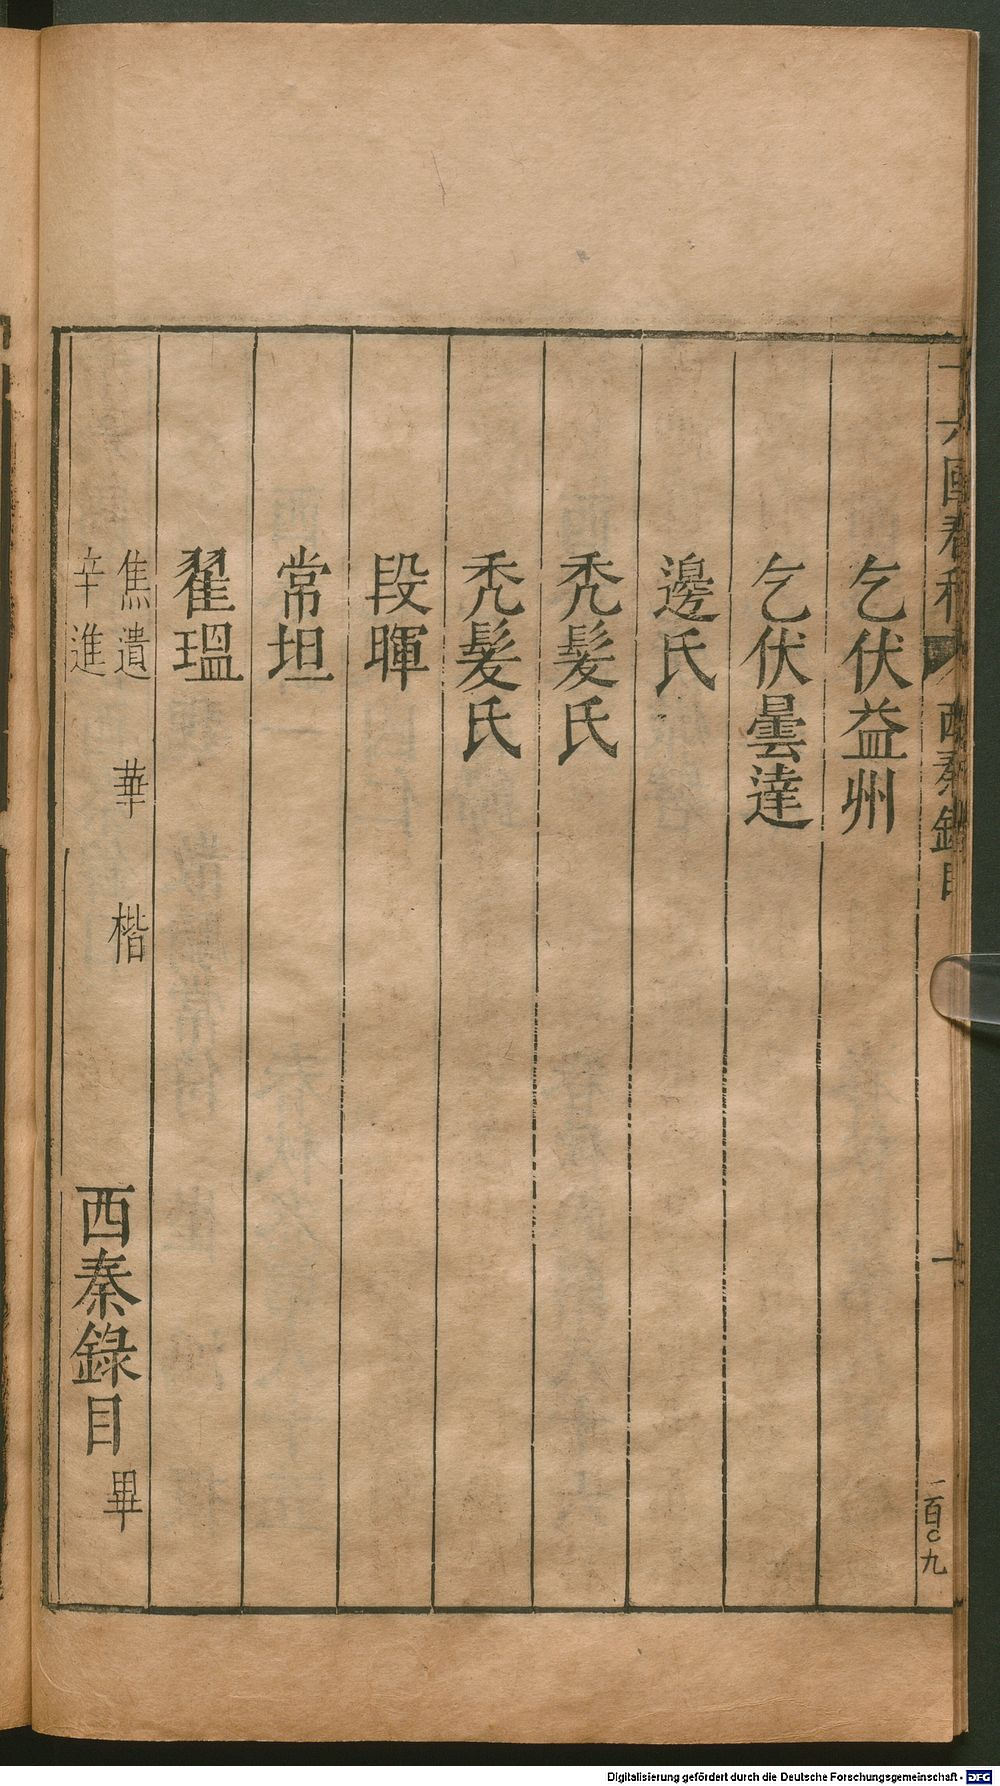 十六國春秋 西秦錄目
一百〇九
乞伏益州
乞伏曇達
邊氏
禿髮氏
禿髮氏
段暉
常坦
翟瑥
焦遺 華 楷
辛進
西秦錄目畢
Digitalisierung gefördert durch die Deutsche Forschungsgemeinschaft - DFG